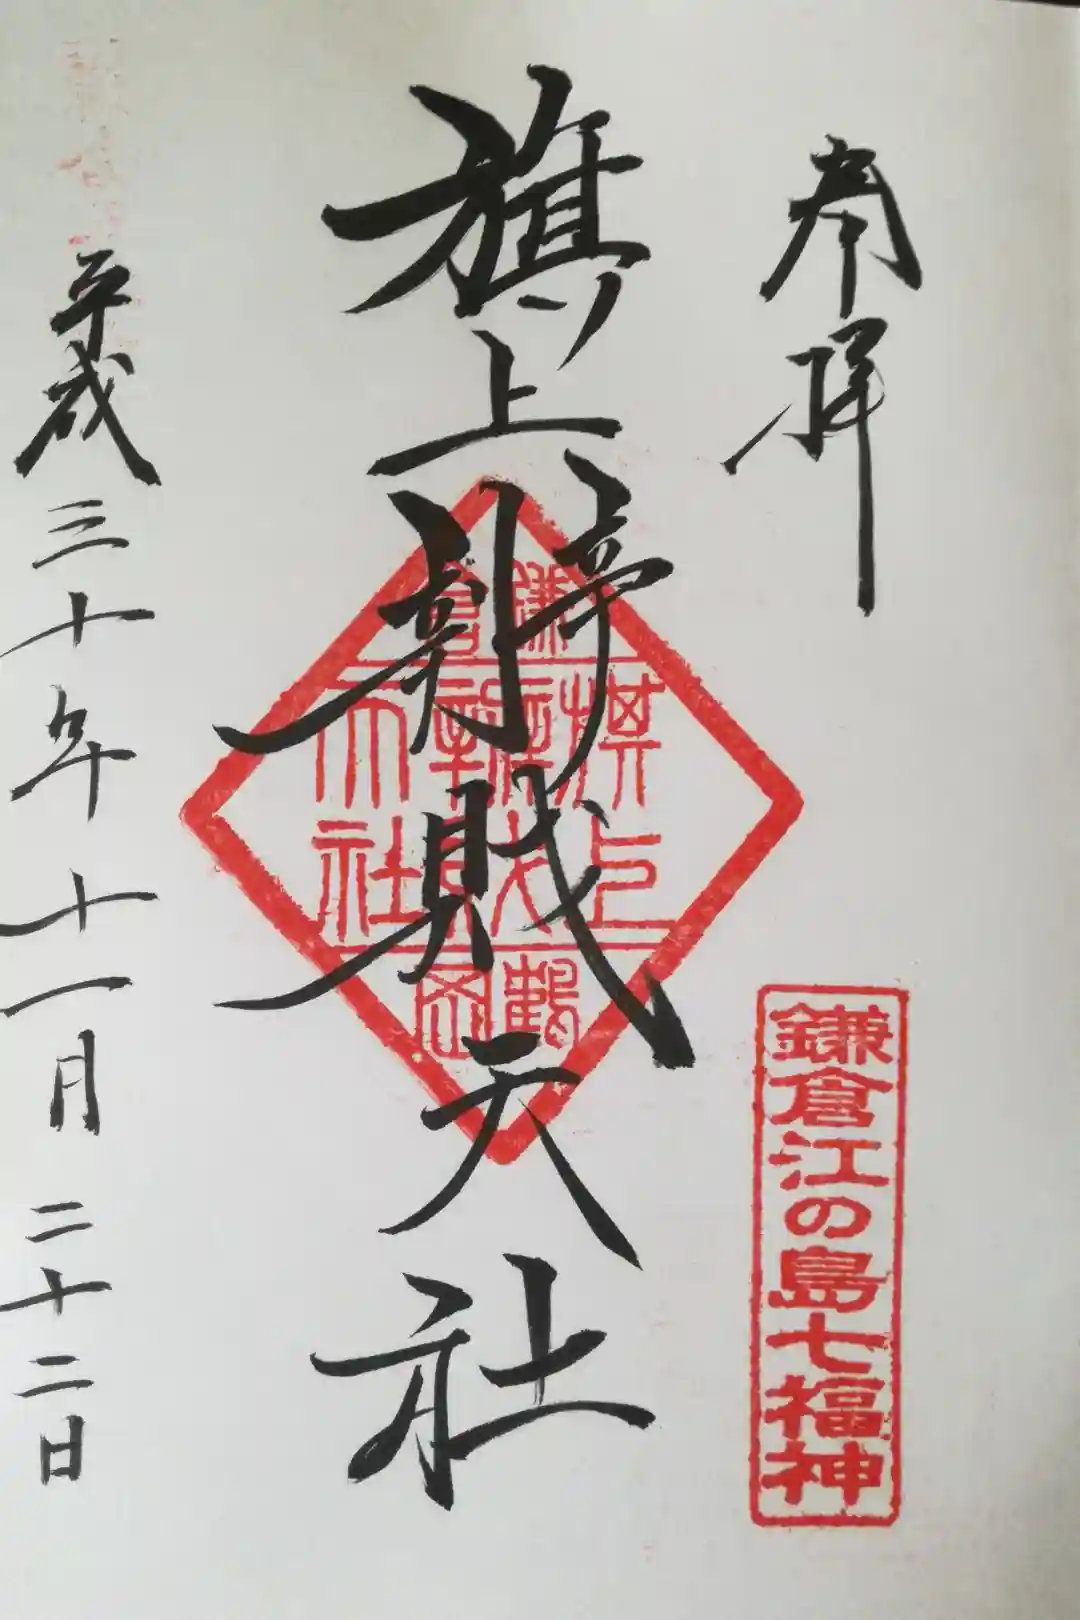 奉拝
鎌倉江の島七福神
旗上辨財天社
鎌倉
旗上
辨財
天社
鶴岡
平成三十年十一月二十二日